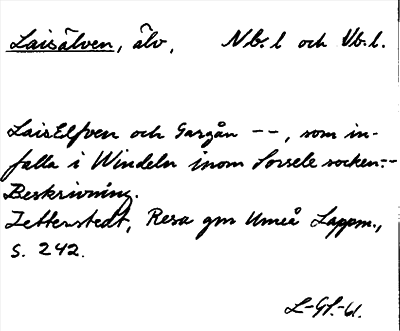 Laisälven, älv, Nb. l och Vb. l.
LaisElfven och Gargån --, som in-
falla i Windeln inom Sorsele socken.--
Beskrivning.
Zetterstedt, Resa gm Umeå Lappm.,
s. 242.